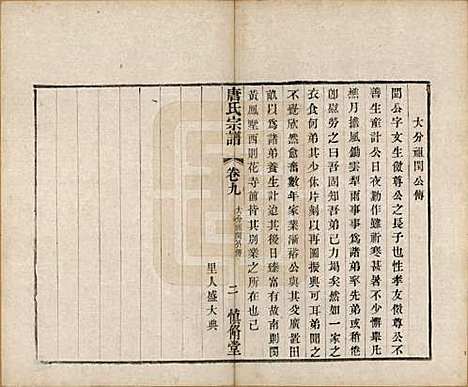 大分祖閏公傳
閏公字友生儆尊公之長子也性孝友儆尊公不
善生產計公日夜勤作雖祈寒甚暑不少懈畢凡
樵月擔風鋤雲犁雨事事爲諸弟率先弟或稍倦
卽慰勞之曰吾固知吾弟已力竭矣然如一家之
衣食何弟其少休片刻以再圖振興可耳弟聞之
不覺欣然愈奮數年家業漸裕公與其父廣置田
畝以爲諸弟養生計迨其後日臻富有故南則閏
黃鳳墅西則花寺前皆其別業之所在也已
里人盛大典
唐氏宗譜
卷九
大分祖閏公傳
二
慎脩堂